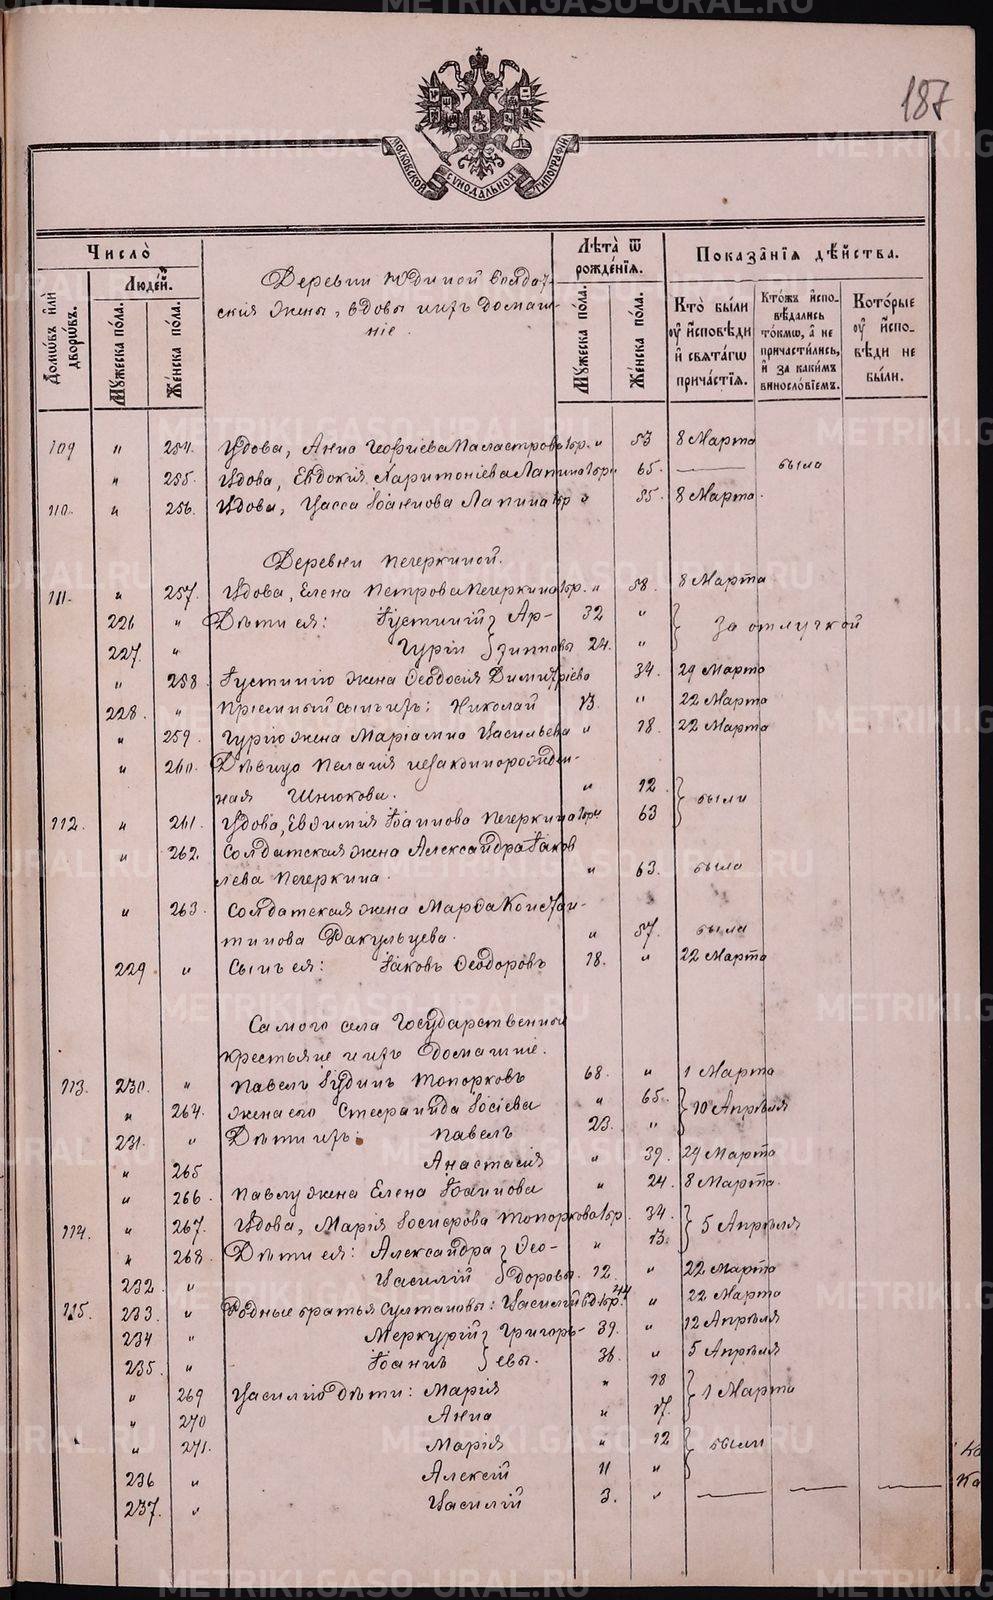 187
МОСКОВСКОЙ СѴНОДАЛЬНОЙ ТИПОГРАФІИ
Число̀
Домѡ́въ и҆лѝ дворѡ́въ.
Люде́й.
Мꙋ́жеска по́ла.
Же́нска по́ла.
Деревни Юдиной солдат-
скія жены, вдовы и ихъ домаш-
ніе.
Лѣ́та ѿ рожде́нїѧ.
Мꙋ́жеска по́ла.
Же́нска по́ла.
Показа̑нїѧ дѣ́йства.
Кто̀ бы́ли оу҆ и҆сповѣ́ди и҆ свѧта́гѡ прича́стїѧ.
Кто́жъ и҆спо-вѣ́дались то́кмѡ, а҆ не причасти́лись, и҆ за каки́мъ винослѡ́вїемъ.
Кото́рые оу҆ и҆спо-вѣ́ди не бы́ли.
109 " 254. Вдова, Анна Георгіева Паластрова 1бр. " 53 8 Марта
" 255. Вдова, Евдокія Харитоніева Лапина 1бр. " 65. — была
110. " 256. Вдова, Васса Іоаннова Лапина 1бр " 55. 8 Марта.
Деревни Печеркиной.
111. " 257. Вдова, Елена Петрова Печеркина 1бр. " 58. 8 Марта
226 " Дѣти ея: Іустиній } Ар- 32 "
227. " Гурій } зиповы 24. " } за отлучкой
" 258. Іустинію жена Ѳеодосія Димитріева 34. 29 Марта
228. " Пріемный сынъ ихъ: Николай 13. " 22 Марта
" 259. Гурію жена Маріамна Васильева " 18. 22 Марта
" 260. Дѣвица Пелагія незаконнорожден-
ная Шнюкова. " 12. } были
112. " 261. Вдова, Евѳимія Іоаннова Печеркина 1бр. 63
" 262. Солдатская жена Александра Іаков
лева Печеркина. " 63. была
" 263. Солдатская жена Марѳа Констан-
тинова Факульцева. " 57. была
229 " Сынъ ея: Іаковъ Ѳеодоровъ 18. " 22 Марта
Самого села Государственные
крестьяне и ихъ домашніе.
113. 230. " Павелъ Іудинъ Топорковъ 68. " 1 Марта
" 264. Жена его Стефанида Іосіева " 65. } 10 Апрѣля
231. " Дѣти ихъ: Павелъ 23. "
" 265 Анастасія " 39. 29 Марта
" 266. Павлу жена Елена Іоаннова " 24. 8 Марта.
114. " 267. Вдова, Марія Іосифова Топоркова 1бр. 34. } 5 Апрѣля
" 268. Дѣти ея: Александра } Ѳео- " 13.
232. " Василій } доровы. 12. " 22 Марта
115. 233. " Родные братья Султановы: Василій вд. 1бр. 44 " 22 Марта
234 " Меркурій } Григорь- 39. " 12 Апрѣля
235. " Іоаннъ } евы. 36. " 5 Апрѣля
" 269 Василію дѣти: Марія " 18 } 1 Марта
" 270 Анна " 17.
" 271. Марія " 12 } были
236 " Алексій 11 "
237. " Василій 3. " — — —